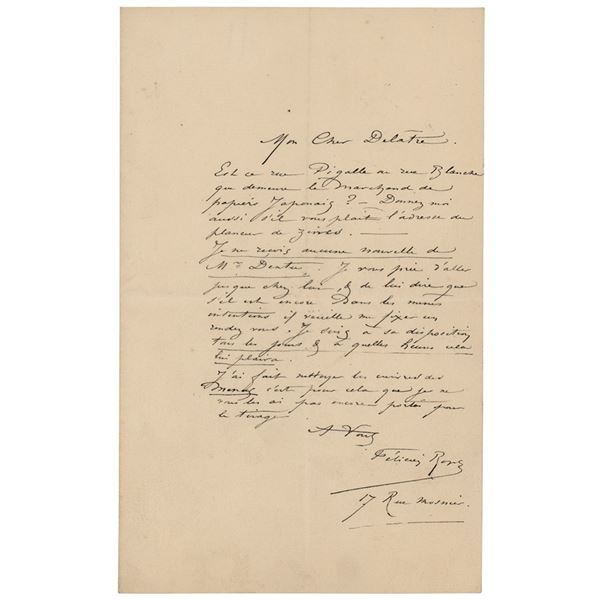 Mon Cher Delâtre.
Est ce rue Pigalle ou rue Blanche
que demeure le Marchand de
papiers Japonais ? — Donnez moi
aussi s'il vous plait l'adresse du
planeur de zincs. —
Je ne reçois aucune nouvelle de
Mr Dentu. Je vous prie d'aller
jusque chez lui, & de lui dire que
s'il est encore dans les mêmes
intentions il veuille me fixer un
rendez vous. Je suis à sa disposition
tous les jours & à quelles heures cela
lui plaira.
J'ai fait nettoyer les cuivres des
c'est pour cela que je ne
vous les ai pas encore portés pour
le tirage
A Vous
Félicien Rops
17 Rue Mosnier.